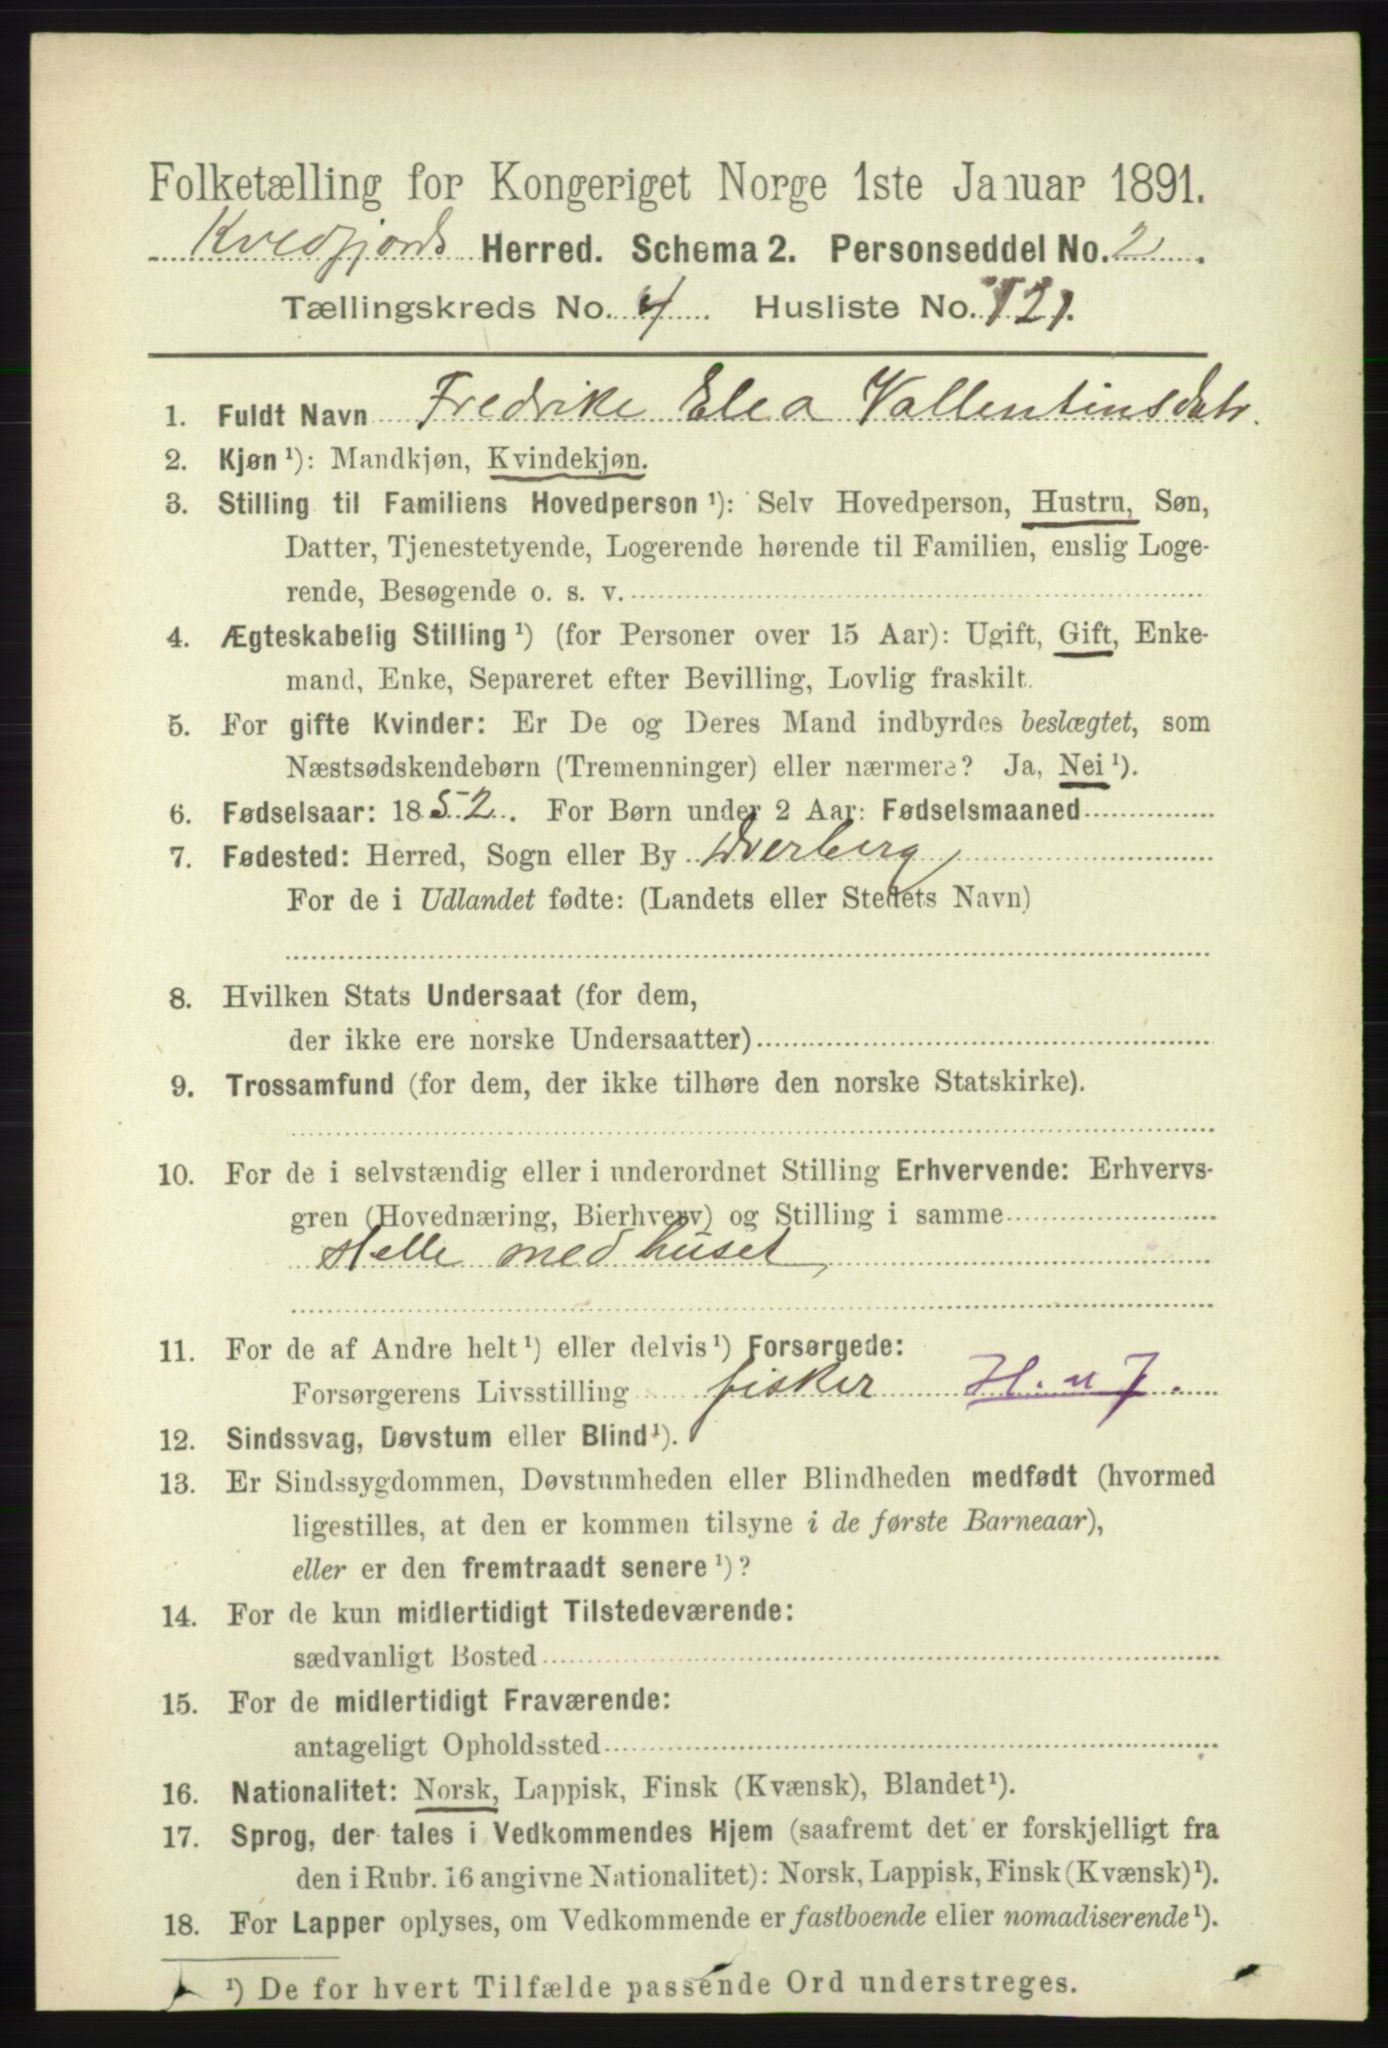 Folketælling for Kongeriget Norge 1ste Januar 1891.
Kvedfjords Herred. Schema 2. Personseddel No. 2.
Tællingskreds No. 4. Husliste No. 121.
1. Fuldt Navn Fredrike Elea Vallentinsdatr.
2. Kjøn ¹): Mandkjøn, Kvindekjøn.
3. Stilling til Familiens Hovedperson ¹): Selv Hovedperson, Hustru, Søn,
Datter, Tjenestetyende, Logerende hørende til Familien, enslig Loge-
rende, Besøgende o. s. v.
4. Ægteskabelig Stilling ¹) (for Personer over 15 Aar): Ugift, Gift, Enke-
mand, Enke, Separeret efter Bevilling, Lovlig fraskilt.
5. For gifte Kvinder: Er De og Deres Mand indbyrdes beslægtet, som
Næstsødskendebørn (Tremenninger) eller nærmere? Ja, Nei ¹).
6. Fødselsaar: 1852. For Børn under 2 Aar: Fødselsmaaned
7. Fødested: Herred, Sogn eller By Dverberg
For de i Udlandet fødte: (Landets eller Stedets Navn)
8. Hvilken Stats Undersaat (for dem,
der ikke ere norske Undersaatter)
9. Trossamfund (for dem, der ikke tilhøre den norske Statskirke).
10. For de i selvstændig eller i underordnet Stilling Erhvervende: Erhvervs-
gren (Hovednæring, Bierhverv) og Stilling i samme
stelle med huset
11. For de af Andre helt ¹) eller delvis ¹) Forsørgede:
Forsørgerens Livsstilling fisker H. u J.
12. Sindssvag, Døvstum eller Blind ¹).
13. Er Sindssygdommen, Døvstumheden eller Blindheden medfødt (hvormed
ligestilles, at den er kommen tilsyne i de første Barneaar),
eller er den fremtraadt senere ¹)?
14. For de kun midlertidigt Tilstedeværende:
sædvanligt Bosted
15. For de midlertidigt Fraværende:
antageligt Opholdssted
16. Nationalitet: Norsk, Lappisk, Finsk (Kvænsk), Blandet ¹).
17. Sprog, der tales i Vedkommendes Hjem (saafremt det er forskjelligt fra
den i Rubr. 16 angivne Nationalitet): Norsk, Lappisk, Finsk (Kvænsk) ¹).
18. For Lapper oplyses, om Vedkommende er fastboende eller nomadiserende ¹).
¹) De for hvert Tilfælde passende Ord understreges.